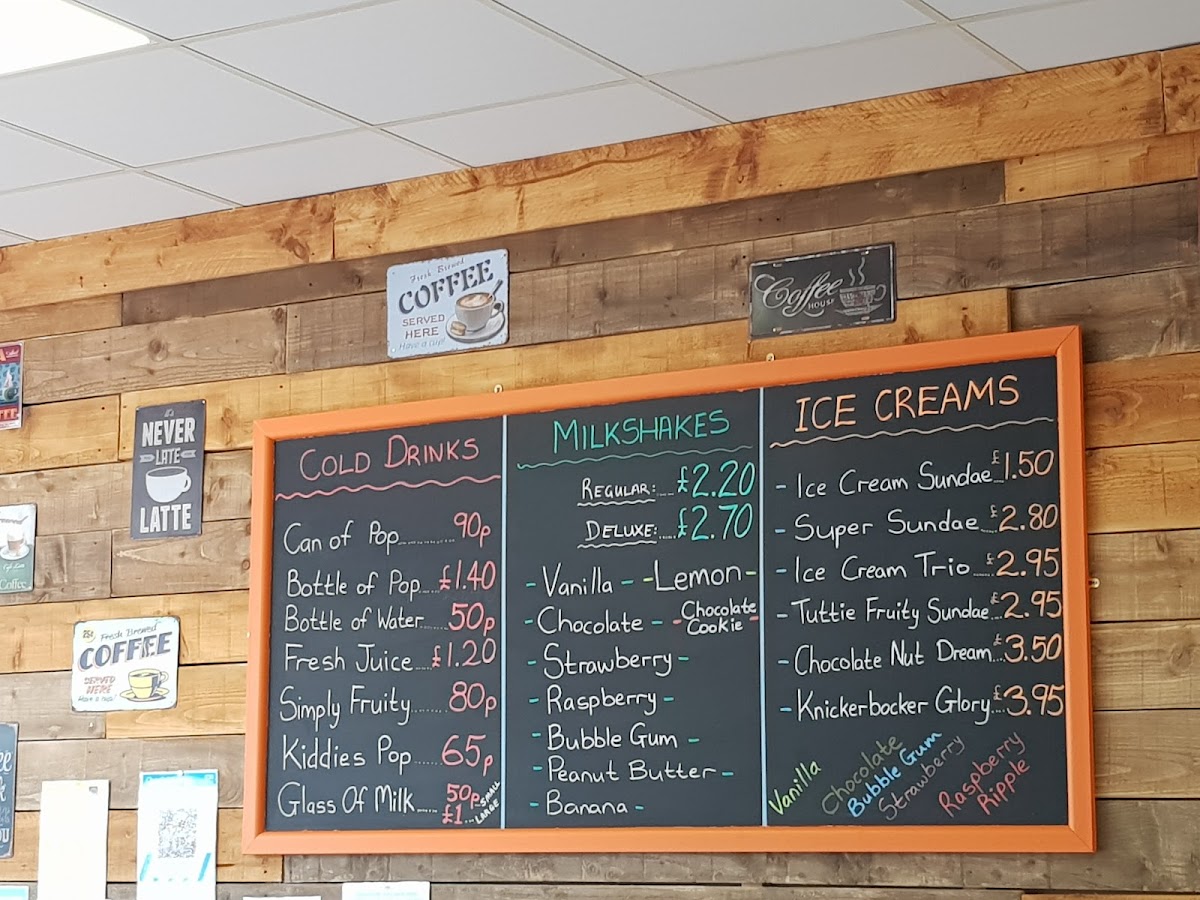 Fresh Brewed
COFFEE
SERVED
HERE
Have a cup!
Coffee
HOUSE
NEVER
LATE
LATTE
Coffee
25c Fresh Brewed
COFFEE
SERVED
HERE
Have a cup!
COLD DRINKS
Can of Pop........... 90p
Bottle of Pop....£1.40
Bottle of Water....50p
Fresh Juice....£1.20
Simply Fruity.......80p
Kiddies Pop....65p
Glass Of Milk.... 50p..SMALL
£1...LARGE
MILKSHAKES
REGULAR:....£2.20
DELUXE:.....£2.70
- Vanilla - - Lemon -
- Chocolate - - Chocolate Cookie -
- Strawberry -
- Raspberry -
- Bubble Gum -
- Peanut Butter -
- Banana -
ICE CREAMS
- Ice Cream Sundae...£1.50
- Super Sundae...£2.80
- Ice Cream Trio....£2.95
- Tuttie Fruity Sundae..£2.95
- Chocolate Nut Dream...£3.50
- Knickerbocker Glory....£3.95
Vanilla
Chocolate
Bubble Gum
Strawberry
Raspberry
Ripple